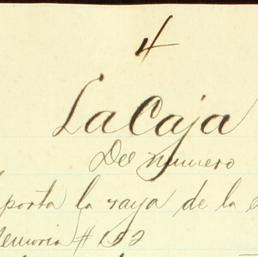 4
La Caja
De numero
porta la raya de la
emoria # 152